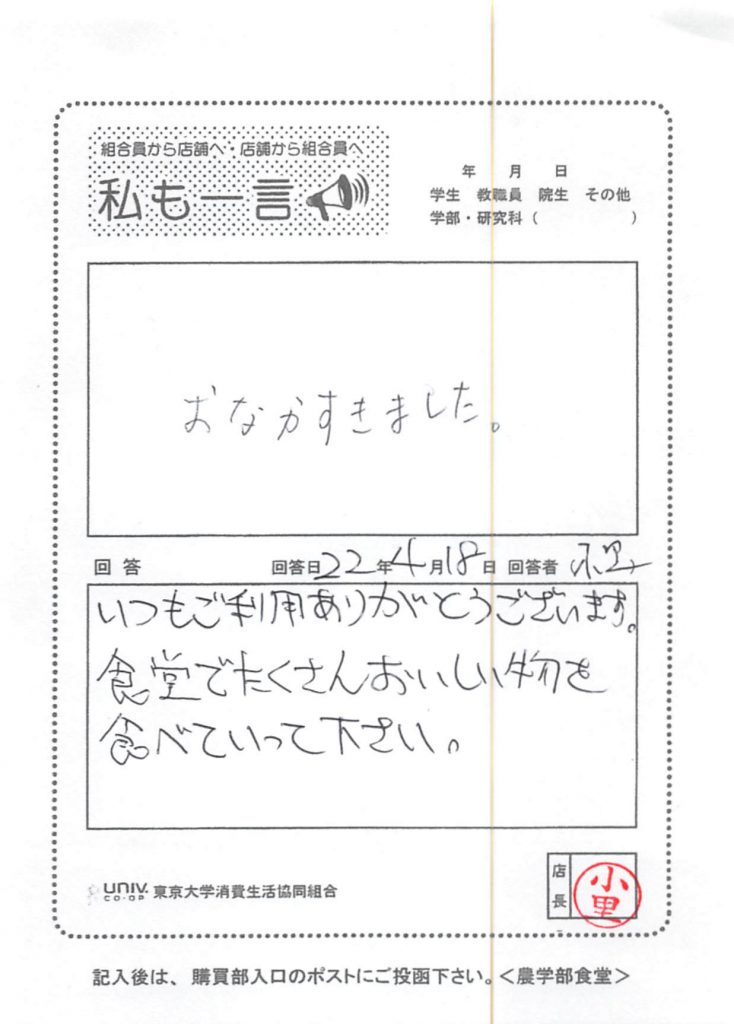 組合員から店舗へ・店舗から組合員へ
私も一言
年 月 日
学生 教職員 院生 その他
学部・研究科( )
おなかすきました。
回答 回答日22年4月18日 回答者 小里
いつもご利用ありがとうございます。
食堂でたくさんおいしい物を
食べていって下さい。
UNIV. CO-OP 東京大学消費生活協同組合
店長 小里
記入後は、購買部入口のポストにご投函下さい。<農学部食堂>